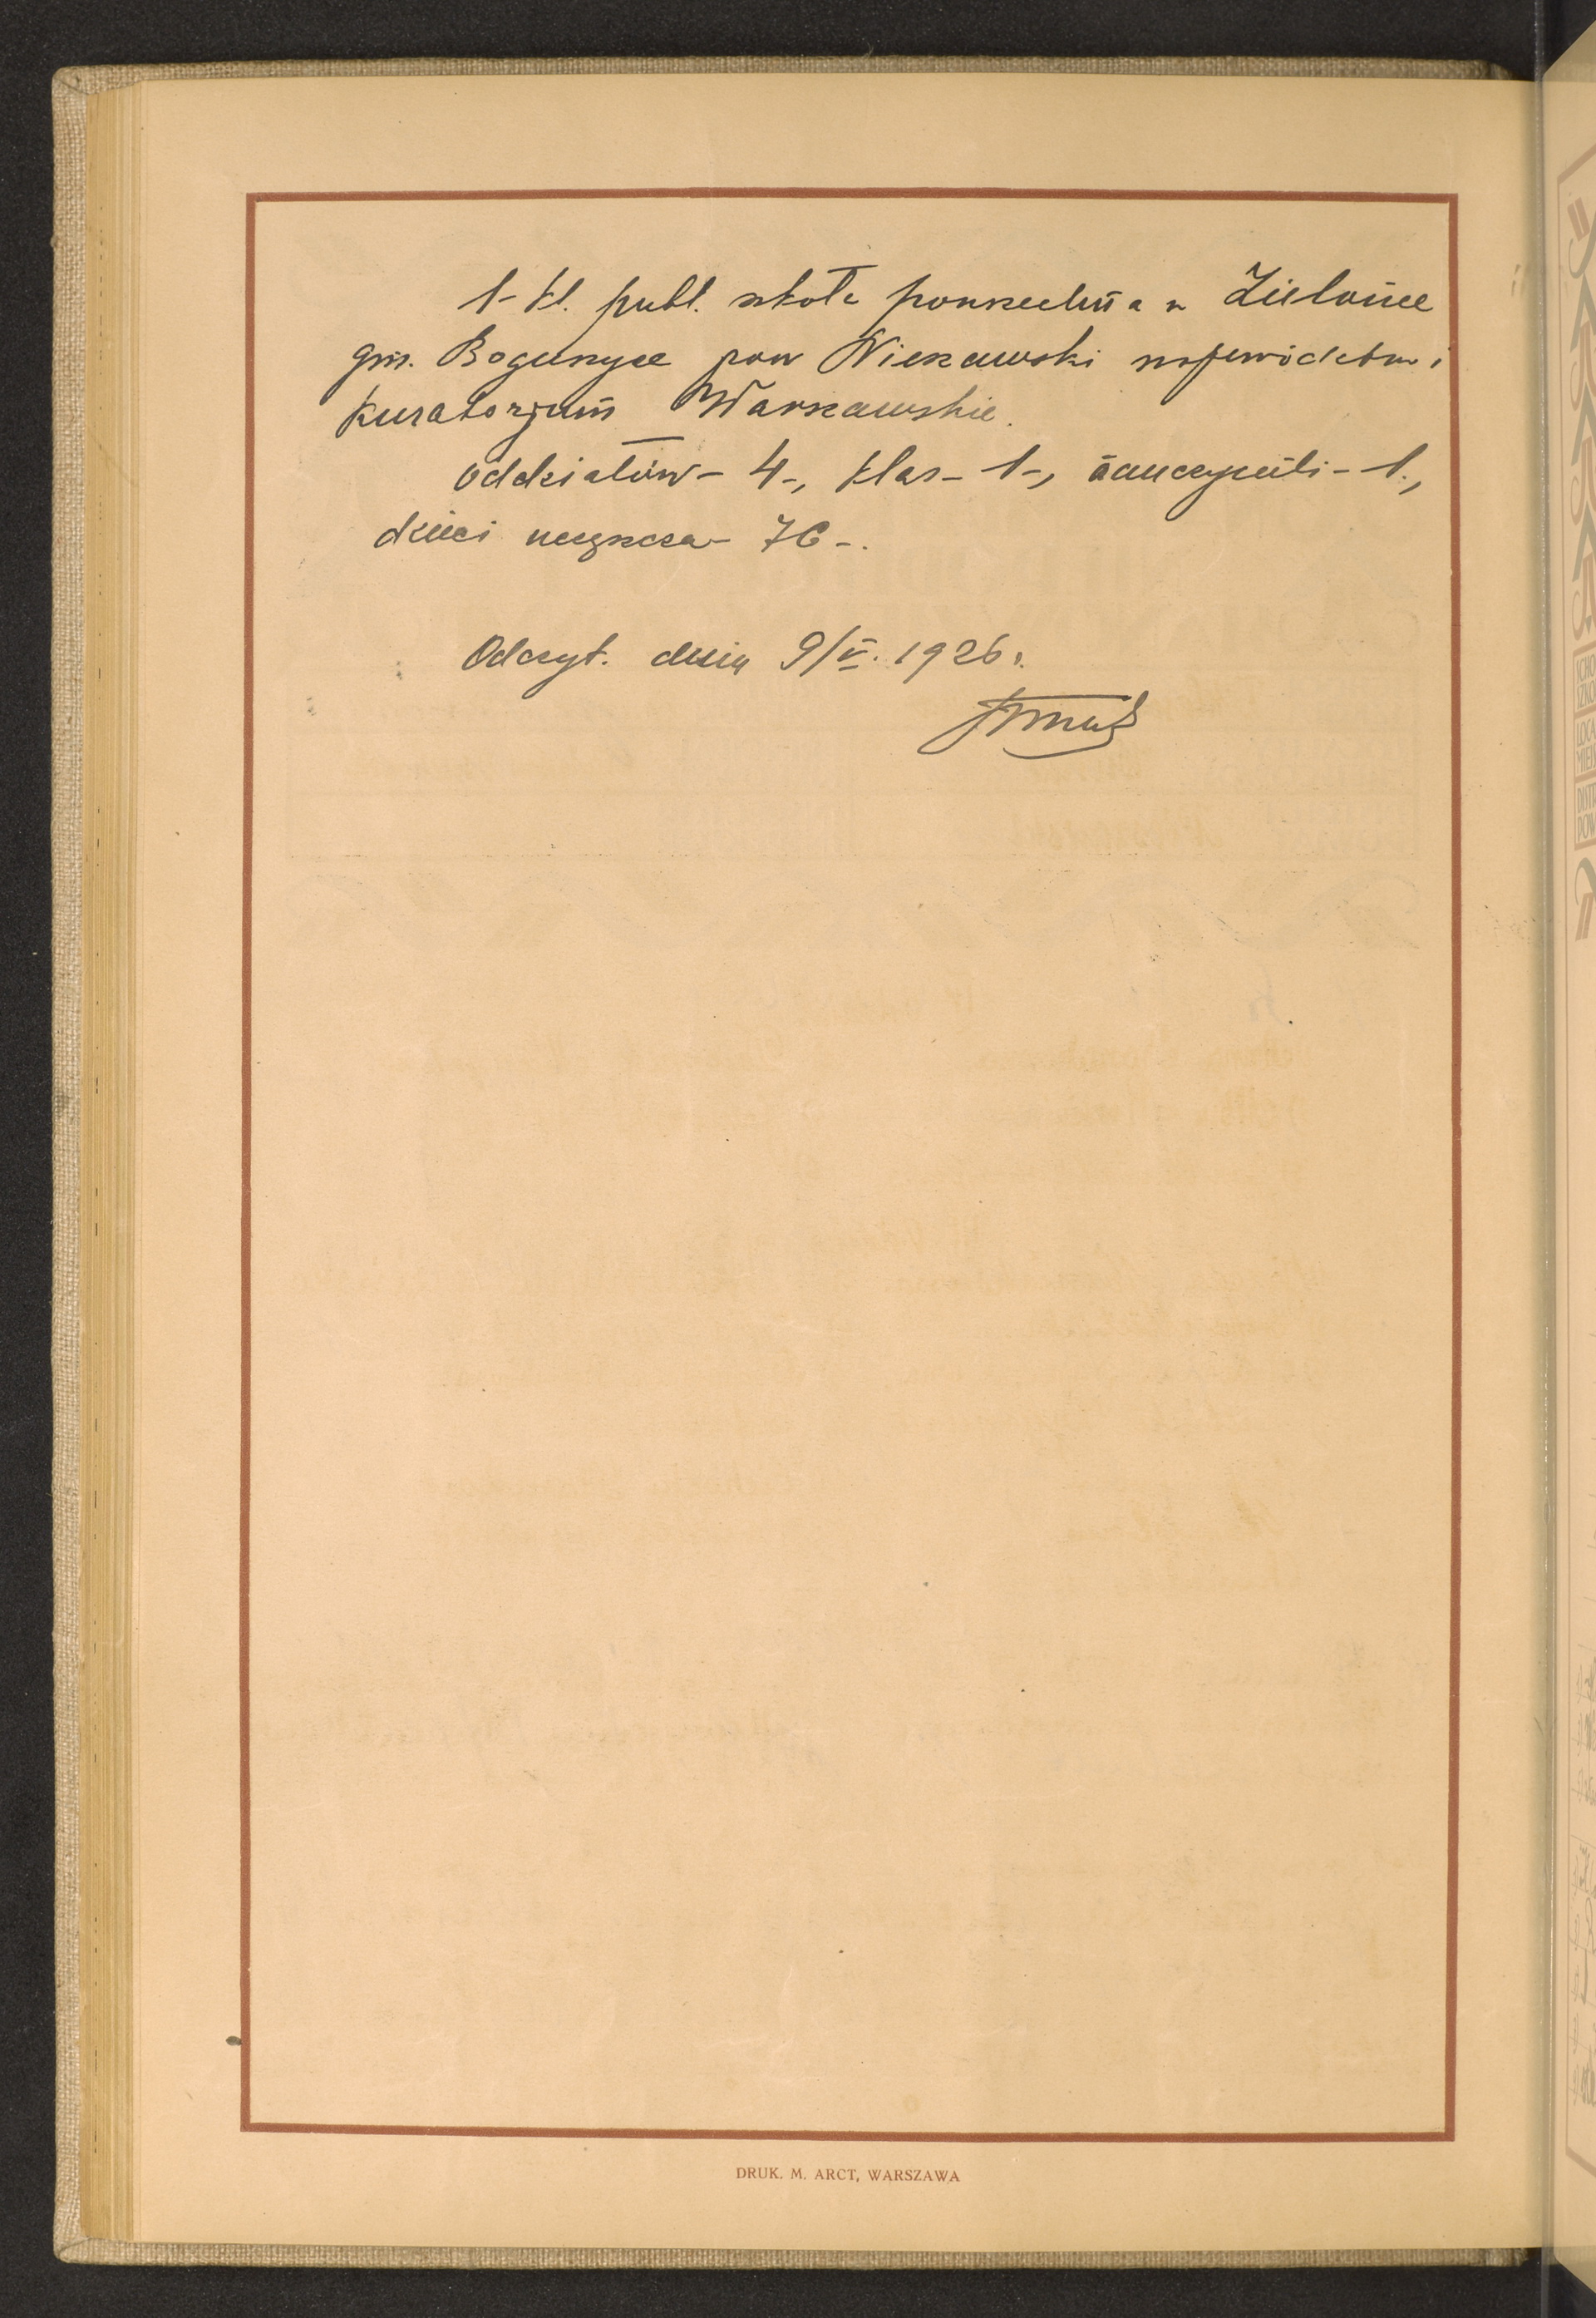 1-kl. publ. szkoła powszechna w Zieleńcu
gm. Boguszyce pow Nieszawski województwo i
Kuratorjum Warszawskie.
oddziałów - 4-, klas - 1-, nauczycieli - 1.,
dzieci uczęszcza - 76 -.
Odczyt. dnia 9/V. 1926 r.
DRUK. M. ARCT, WARSZAWA